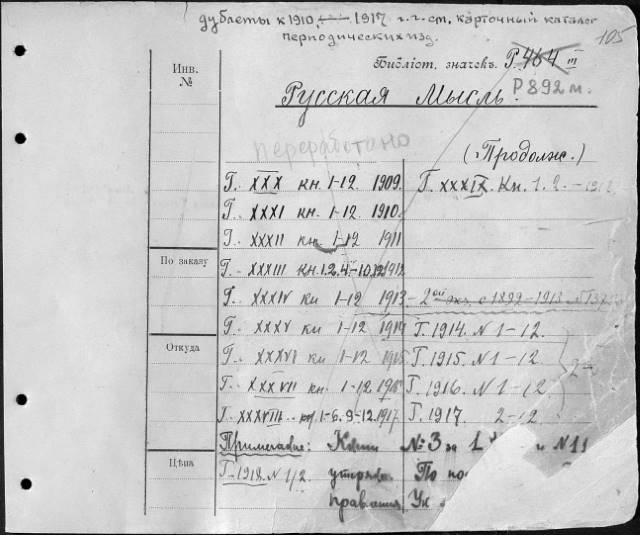 дублеты к 1910 — 1917 г.г. ст. карточный каталог
периодических изд.
105
Библіот. значекъ Р. 464 III
Р 892 м.
Инв.
№
Русская Мысль.
переработано
(Продолж.)
Г. XXX кн. 1-12 1909. Г. XXXIX. Кн. 1. 2. - 1918
Г. XXXI кн. 1-12 1910.
Г. XXXII кн. 1-12 1911
По заказу
Г. XXXIII кн. 1.2.4-10.12 1912
Г. XXXIV кн 1-12 1913 - 2ой экз. с 1899-1913
Г. XXXV кн 1-12 1914 Г. 1914. N 1-12.
Откуда
Г. XXXVI кн 1-12 1915 Г. 1915. N 1-12.
Г. XXXVII кн. 1-12 1916 Г. 1916. N 1-12.
Г. XXXVIII 1-6. 9-12. 1917 Г. 1917. 2-12
Примечание: Книги № 3 за и N 11
Цѣна
Г. 1918. N 1/2. утеряны. По
правления Ук